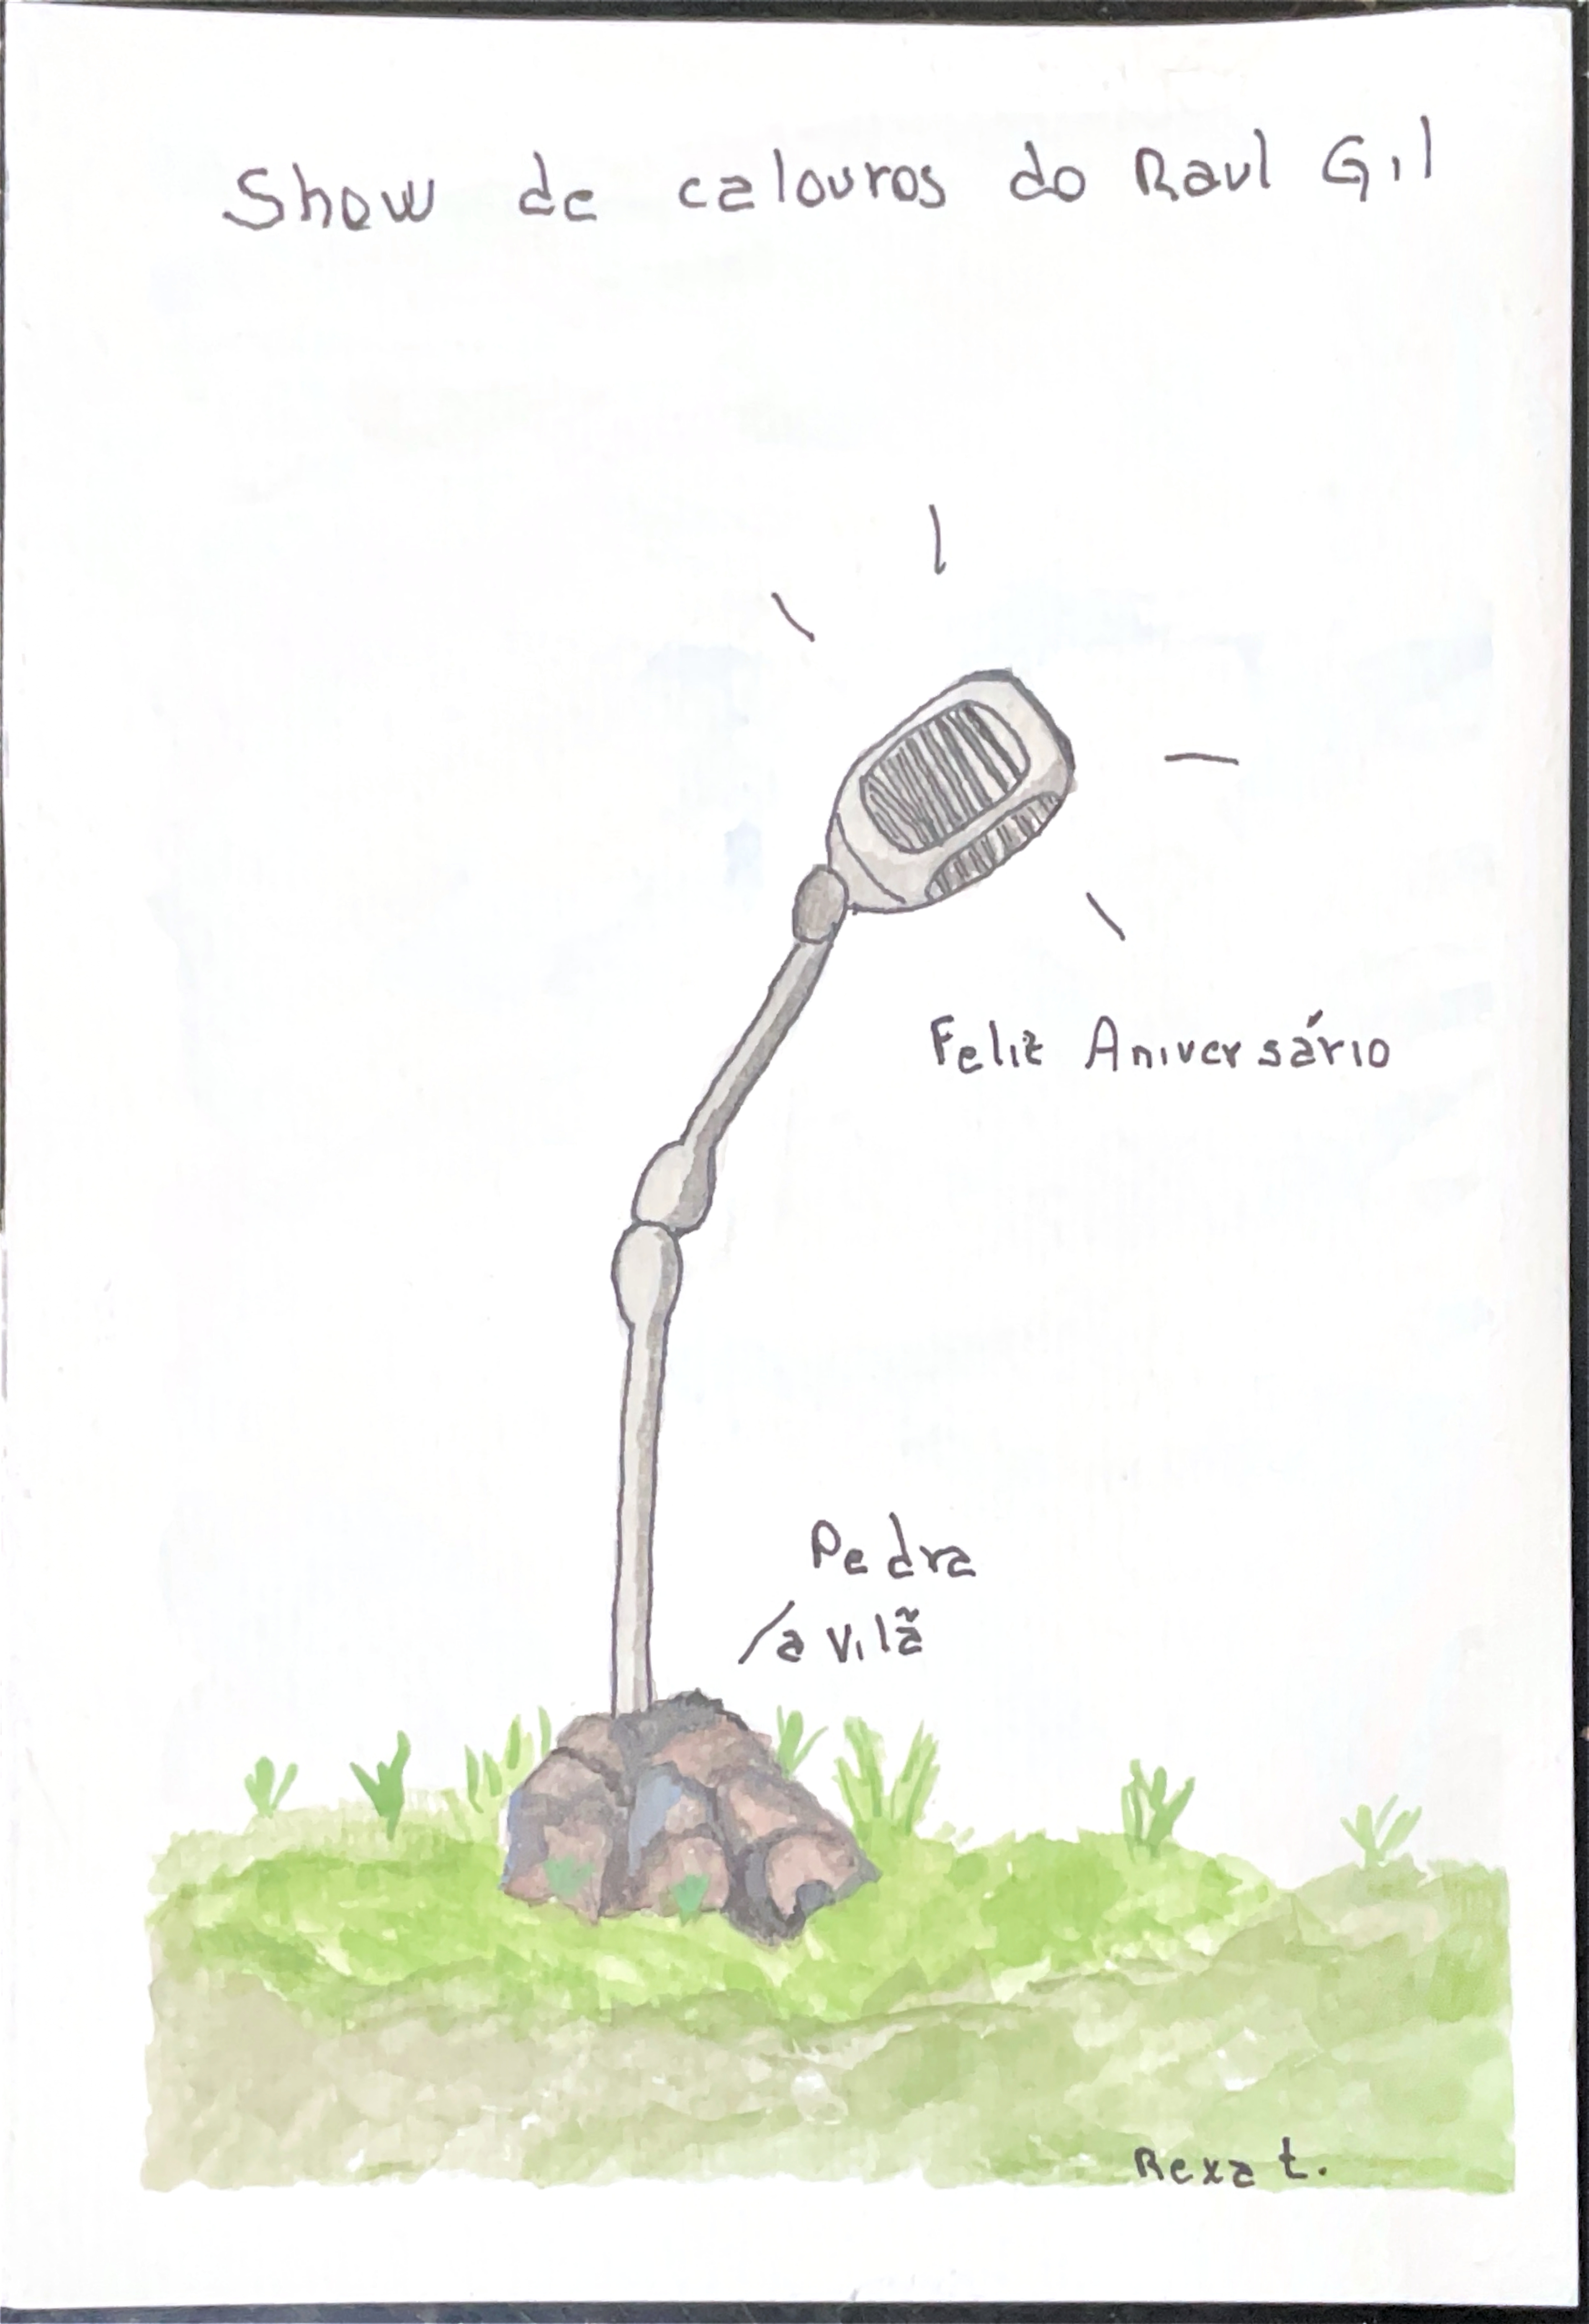 Show de calouros do Raul Gil
Feliz Aniversário
Pedra
a vilã
Rexa t.